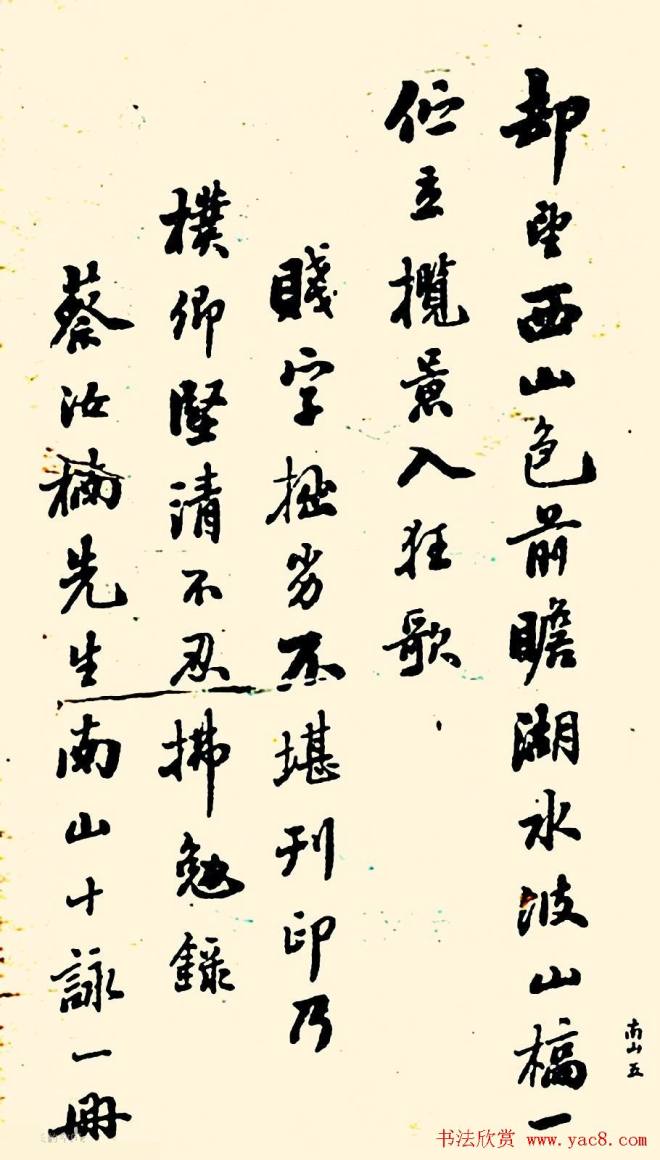 却望西山色前瞻湖水波山槁一
佇立攬景入狂歌
賤字拙劣不堪刊印乃
樸卿堅清不忍拂勉錄
蔡汝楠先生南山十詠一冊
南山五
书法欣赏 www.yac8.com